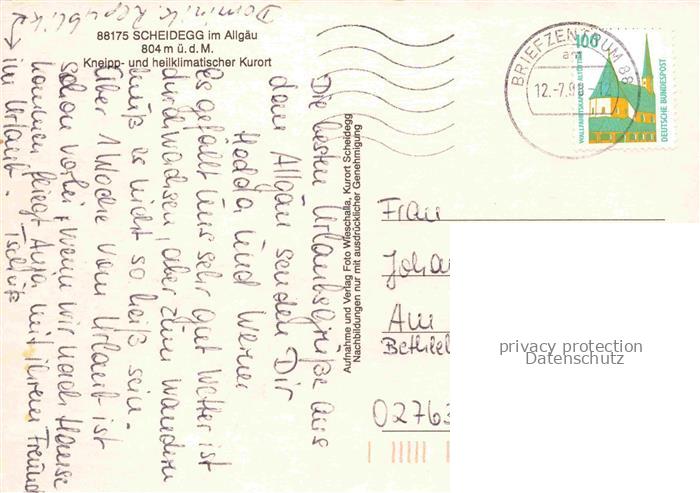 88175 SCHEIDEGG im Allgäu
804 m ü. d. M.
Kneipp- und heilklimatischer Kurort
Die besten Urlaubsgrüße aus
dem Allgäu senden Dir
Hedda und Werner
Es gefällt uns sehr gut Wetter ist
durchwachsen, aber zum wandern
muß es nicht so heiß sein.
Über 1 Woche vom Urlaub ist
schon vorbei, wenn wir nach Hause
kommen fliegt Anja mit ihrem Freund
→ in Urlaub. Tschüß
Dominik. Republik
Aufnahme und Verlag Foto Wieschalla, Kurort Scheidegg
Nachbildungen nur mit ausdrücklicher Genehmigung
BRIEFZENTRUM 88
12.-7.9 -12
100
WALLFAHRTSKAPELLE ALTÖTTING
DEUTSCHE BUNDESPOST
Frau
Am
02763
privacy protection
Datenschutz